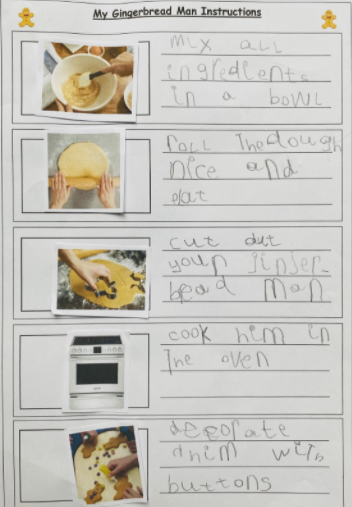 My Gingerbread Man Instructions
mix all
ingredients
in a bowl
roll the dough
nice and
flat
cut out
your jinjer
bead man
cook him in
the oven
decorate
him with
buttons